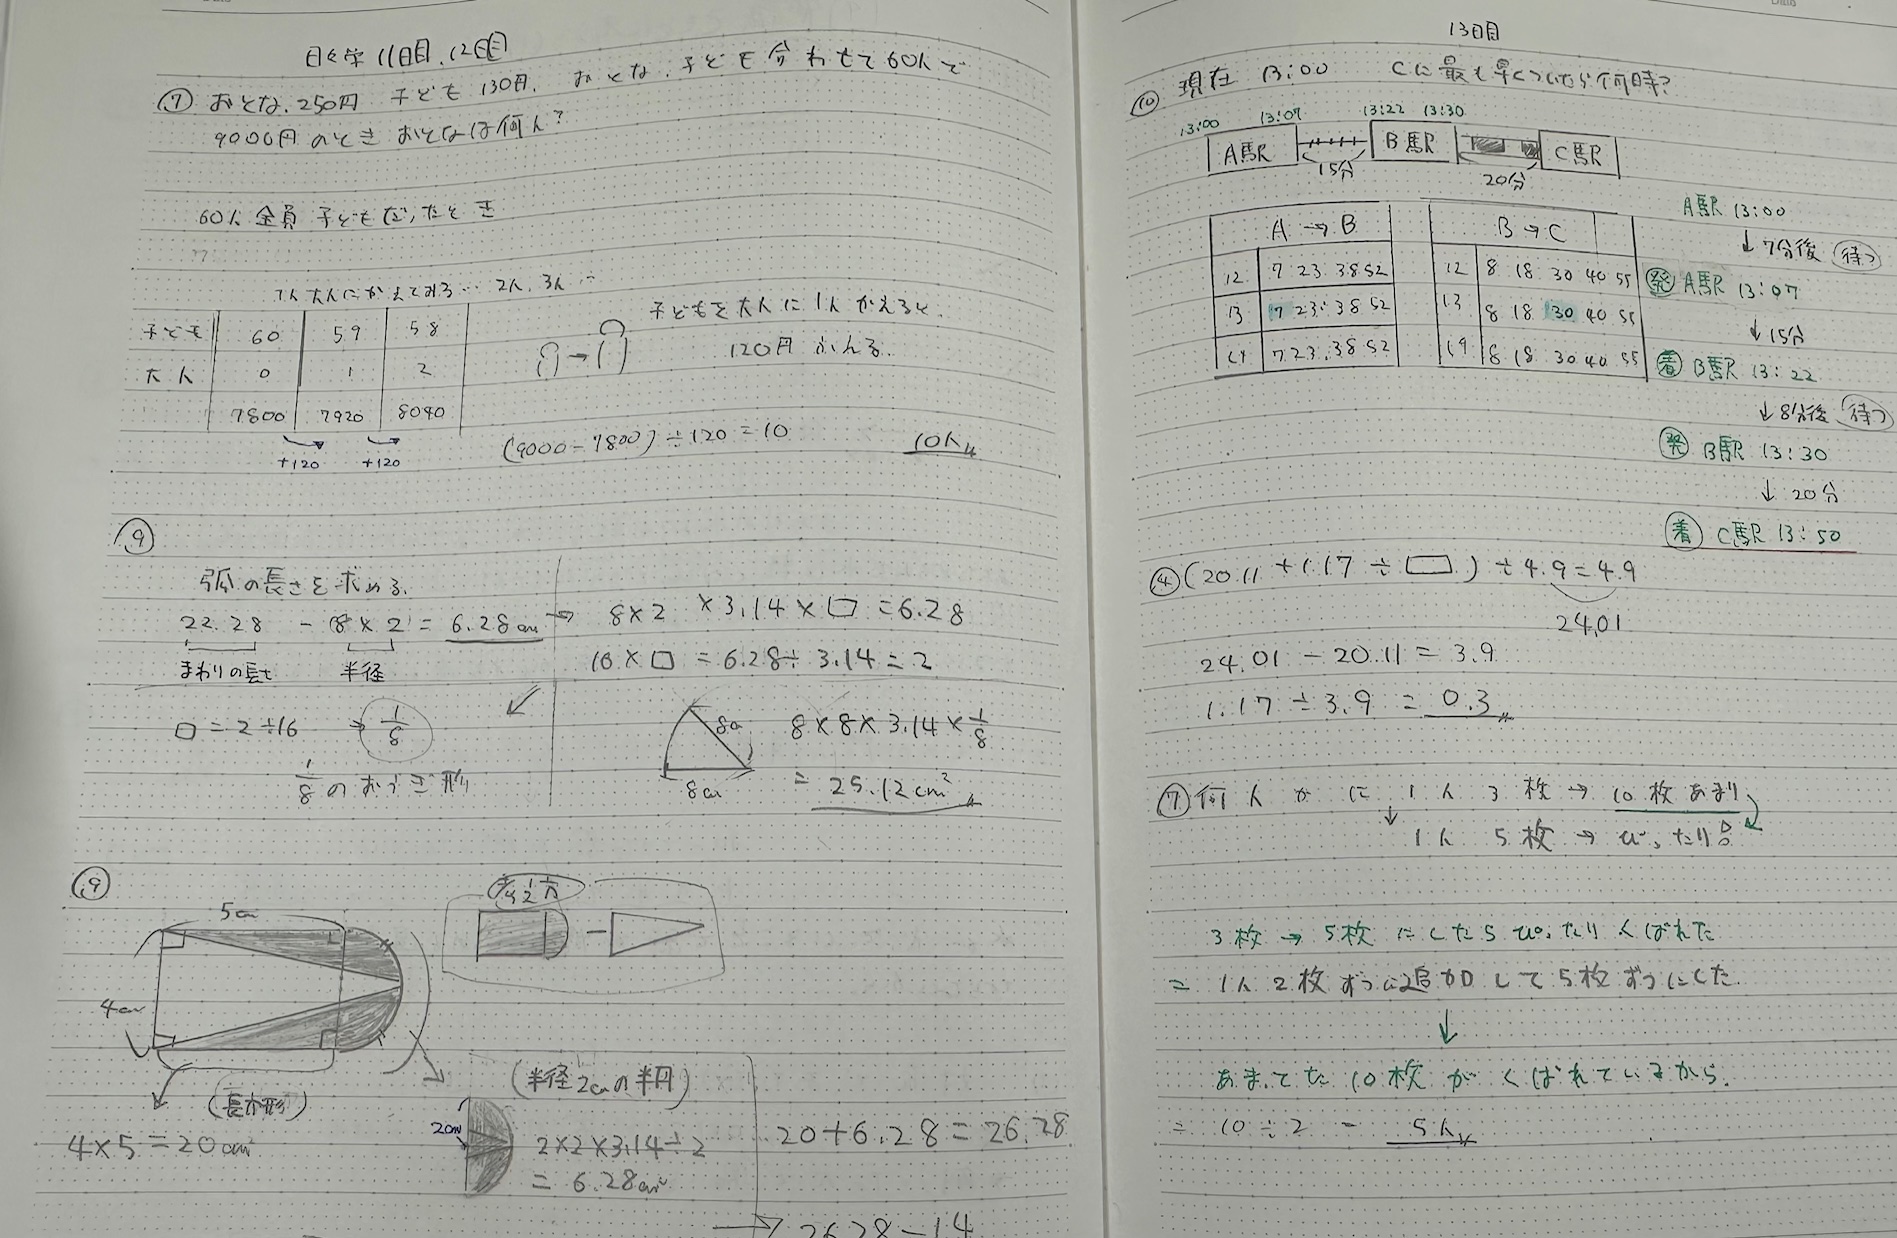 日々学 11日目.12日目
⑦ おとな.250円 子ども 130円. おとな.子ども 合わせて60人で
9000円のとき おとなは何人?
60人全員 子どもだったとき
1人大人にかえてみる… 2人.3人…
子ども 60 59 58
大人 0 1 2
7800 7920 8040
+120 +120
子どもを大人に1人かえると、
120円ふえる.
(9000-7800)÷120=10
10人
⑨
弧の長さを求める.
22.28 - (8×2) = 6.28cm →
まわりの長さ 半径
8×2 ×3.14×□=6.28
16×□=6.28÷3.14=2
□=2÷16 → 1/8
1/8のおうぎ形
8cm
8cm
8×8×3.14×1/8
= 25.12cm²
⑨
5cm
4cm
(長方形)
4×5=20cm²
(半径2cmの半円)
2cm
2×2×3.14÷2
=6.28cm²
20+6.28=26.28
→ 26.28-14
13日目
⑩ 現在 13:00 Cに最も早くついたら何時?
13:00 13:07 13:22 13:30
A駅 B駅 C駅
15分 20分
A→B
12 7 23.38 52
13 7 23.38 52
14 7.23.38 52
B→C
12 8 18 30 40 55
13 8 18 30 40 55
14 8 18 30 40 55
A駅 13:00
↓7分後 (待つ)
(発) A駅 13:07
↓15分
(着) B駅 13:22
↓8分後 (待つ)
(発) B駅 13:30
↓ 20分
(着) C駅 13:50
④ (20.11+1.17÷□)÷4.9=4.9
24.01
24.01-20.11=3.9
1.17÷3.9=0.3
⑦ 何人かに 1人3枚→10枚あまり
↓ 1人 5枚→ぴったり
3枚→5枚にしたらぴったりくばれた
= 1人2枚ずつ追加して5枚ずつにした.
↓
あまってた10枚がくばれているから.
= 10÷2 = 5人